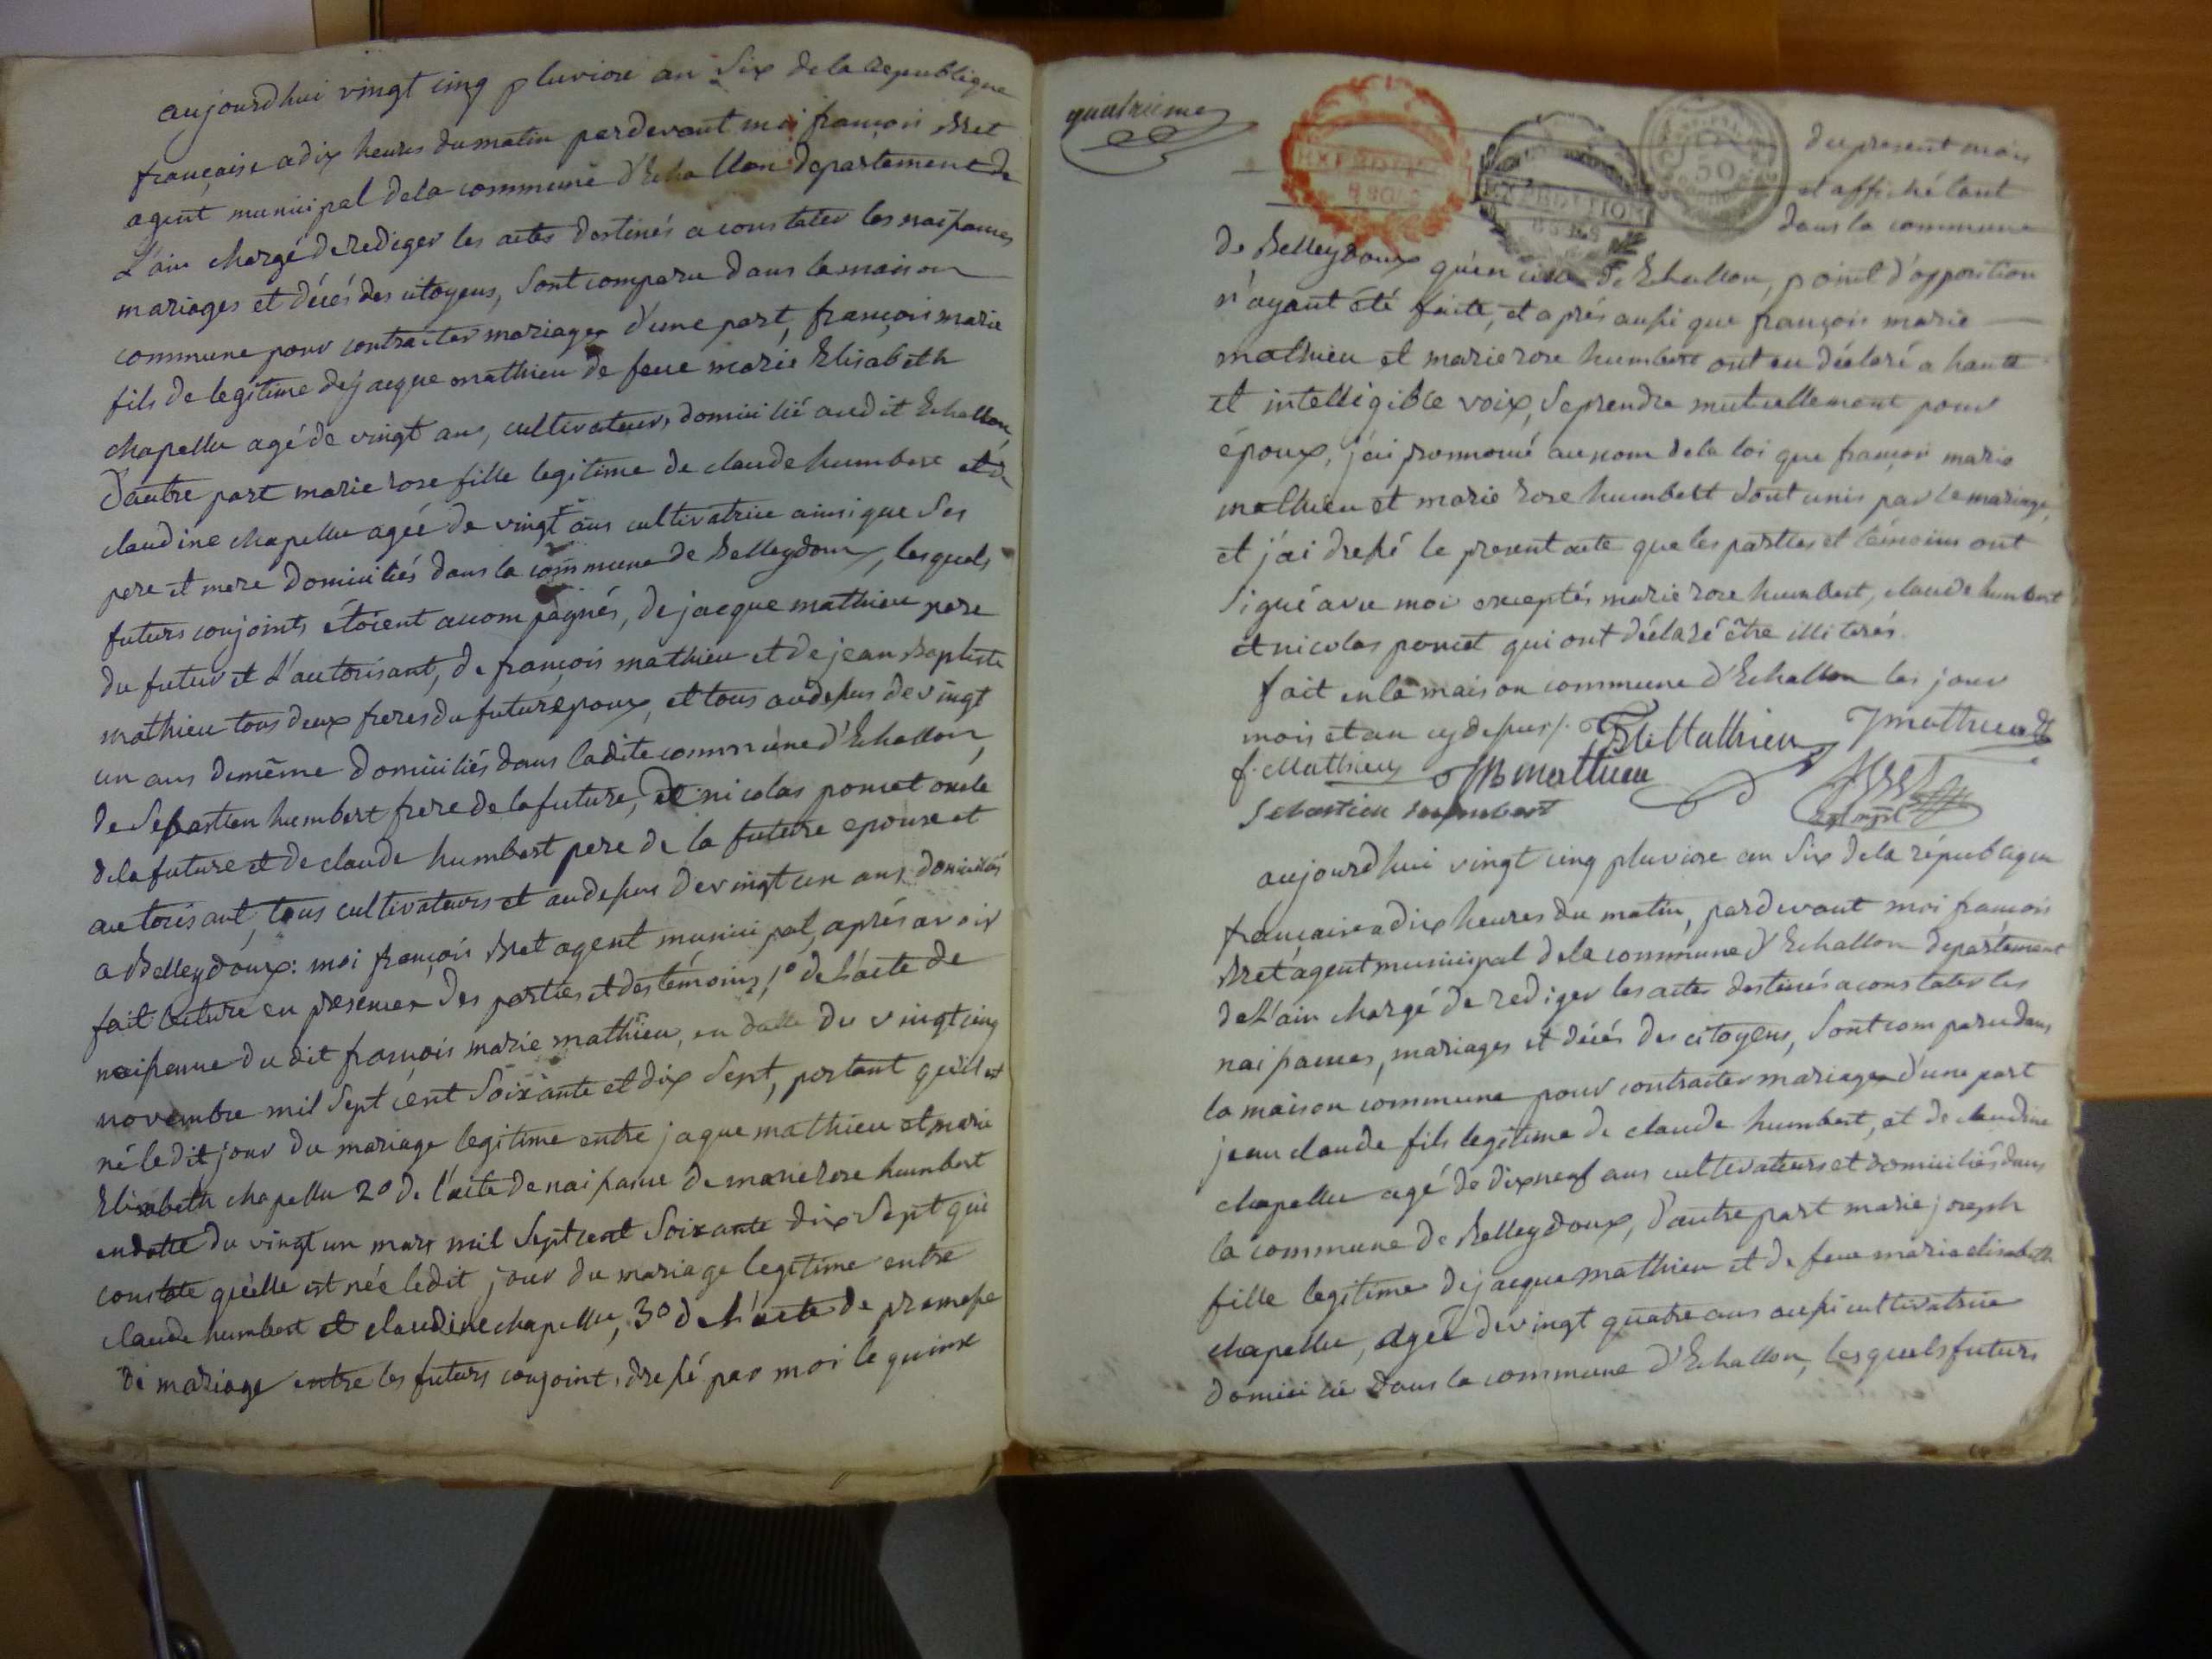 aujourdhui vingt cinq pluviose an Six de la Republique
française a dix heures du matin pardevant moi françois Bret
agent municipal dela commune d'Echallon departement de
L'ain chargé de rediger les actes destinés a constater les naissances
mariages et décés des citoyens, Sont comparu dans la maison
commune pour contracter mariage d'une part, françois marie
fils de legitime de jacque mathieu de feue marie Elisabeth
chapellu agé de vingt ans, cultivateurs domicilié audit Echallon,
D'autre part marie rose fille legitime de claude humbert et de
claudine chapellu agée de vingt ans cultivatrice ainsi que Ses
pere et mere domiciliés dans la commune de Belleydoux, lesquels
futurs conjoints étoient accompagnés, de jacque mathieu pere
du futur et L'autorisant, de françois mathieu et de jean Baptiste
mathieu tous deux freres du futur epoux, et tous audessus de vingt
un ans demême domiciliés dans ladite commune d'Echallon,
de Sebastien humbert frere de la future, de nicolas poncet oncle
dela future et de claude humbert pere de la future epouse et
autorisant, tous cultivateurs et audessus de vingt un ans domiciliés
a Belleydoux: moi françois Bret agent municipal, aprés avoir
fait lecture en presence des parties et des témoins, 1º de L'acte de
naissance du dit françois marie mathieu, en datte du vingt cinq
novembre mil Sept cent Soixante et dix Sept, portant qu'il est
né ledit jour du mariage legitime entre jaque mathieu et marie
Elisabeth chapellu 2º de l'acte de naissance de marie rose humbert
en datte du vingt un mars mil Sept cent Soixante dix Sept qui
constate qu'elle est née ledit jour du mariage legitime entre
claude humbert et claudine chapellu, 3º de L'acte de promesse
de mariage entre les futurs conjoints, dressé par moi le quinze
quatrieme
EXPEDITION
EXPEDITION
50
du present mois
et affiché tant
dans la commune
de Belleydoux qu'en celle de Echallon, point d'opposition
n'ayant été faite, et aprés aussi que françois marie
mathieu et marie rose humbert ont eu déclaré a haute
et intelligible voix, Se prendre mutuellement pour
époux, j'ai prononcé au nom de la loi que françois marie
mathieu et marie rose humbert Sont unis par le mariage,
et j'ai dressé le present acte que les parties et témoins ont
Signé avec moi exceptés marie rose humbert, claude humbert
et nicolas poncet qui ont déclaré être illiterés.
fait en la maison commune d'Echallon les jour
mois et an cy dessus
Mathieu J mathieu
f. Mathieu JB mathieu
Sebastien humbert
aujourdhui vingt cinq pluviose an Six dela république
française a dix heures du matin, pardevant moi françois
Bret agent municipal dela commune d'Echallon departement
de L'ain chargé de rediger les actes destinés a constater les
naissances, mariages et décés des citoyens, Sont comparu dans
la maison commune pour contracter mariage d'une part
jean claude fils legitime de claude humbert, et de claudine
chapellu agé de dix neuf ans cultivateurs et domiciliés dans
la commune de Belleydoux, d'autre part marie joseph
fille legitime de jacque mathieu et de feue marie elisabeth
chapellu, agée de vingt quatre ans aussi cultivatrice
domiciliée dans la commune d'Echallon, lesquels futurs